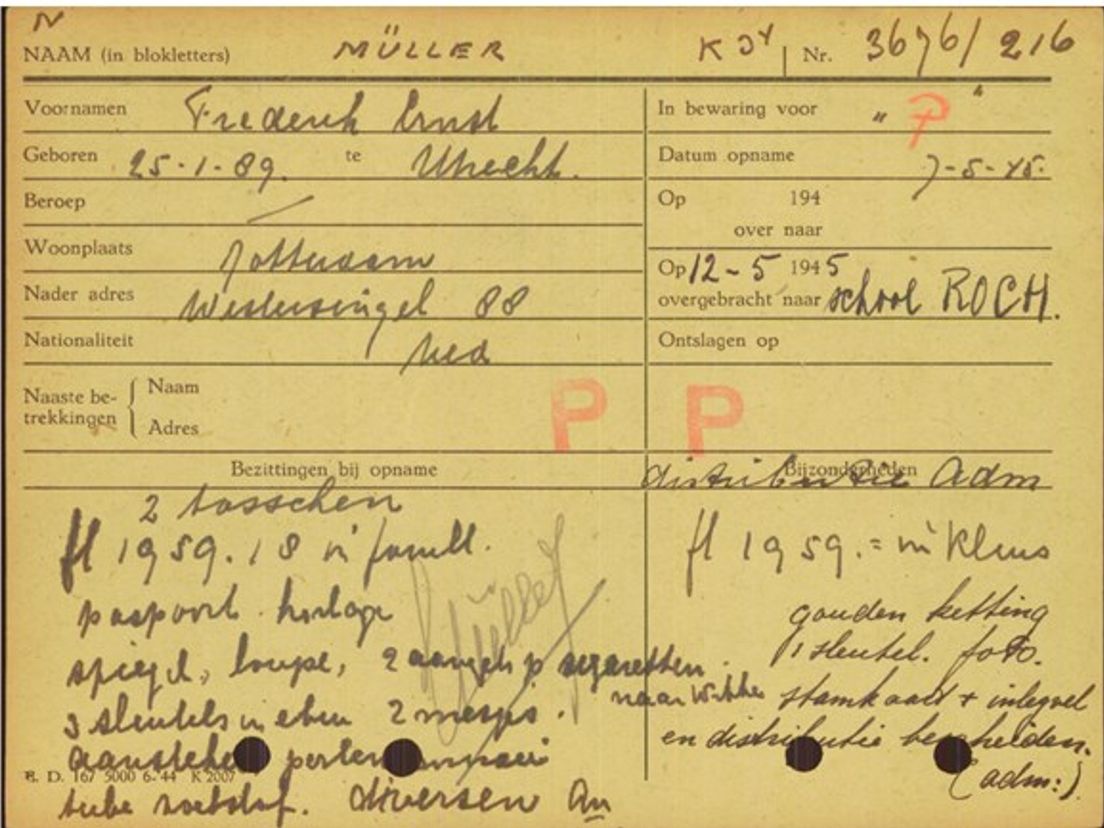 N
NAAM (in blokletters) MÜLLER Nr. 3676/216
Voornamen Frederik Ernst
In bewaring voor " P "
Geboren 25-1-89. te Utrecht.
Datum opname 7-5-45.
Beroep
Op 194
over naar
Woonplaats Rotterdam
Op 12-5 1945
overgebracht naar school ROCH.
Nader adres Westersingel 88
Nationaliteit Ned
Ontslagen op
Naaste be-
trekkingen
Naam
Adres
P P
Bezittingen bij opname
Bijzonderheden
distributie adm
2 tasschen
fl 1959.18 in
paspoort horloge
spiegel, loupe, 2 aangeb. p sigaretten.
3 sleutels in 2 mesjes.
aansteker
tube zoetstof. diversen An
Müller
fl 1959.= in kluis
gouden ketting
1 sleutel. foto.
naar stamkaart + inlegvel
en distributie bescheiden.
(adm:)
E. D. 167 5000 6-44 K 2007